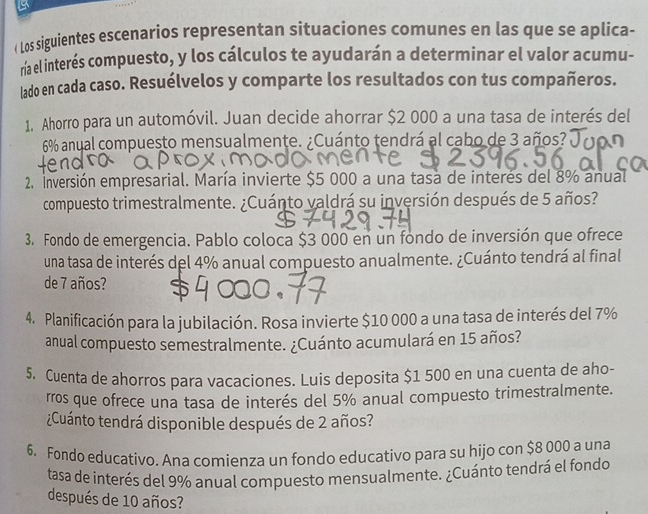 Los siguientes escenarios representan situaciones comunes en las que se aplica-
ría el interés compuesto, y los cálculos te ayudarán a determinar el valor acumu-
lado en cada caso. Resuélvelos y comparte los resultados con tus compañeros.
1. Ahorro para un automóvil. Juan decide ahorrar $2 000 a una tasa de interés del
6% anual compuesto mensualmente. ¿Cuánto tendrá al cabo de 3 años? Juan
tendra aproximadamente $2396.56 al ca
2. Inversión empresarial. María invierte $5 000 a una tasa de interés del 8% anual
compuesto trimestralmente. ¿Cuánto valdrá su inversión después de 5 años?
$7429.74
3. Fondo de emergencia. Pablo coloca $3 000 en un fondo de inversión que ofrece
una tasa de interés del 4% anual compuesto anualmente. ¿Cuánto tendrá al final
de 7 años? $4000.77
4. Planificación para la jubilación. Rosa invierte $10 000 a una tasa de interés del 7%
anual compuesto semestralmente. ¿Cuánto acumulará en 15 años?
5. Cuenta de ahorros para vacaciones. Luis deposita $1 500 en una cuenta de aho-
rros que ofrece una tasa de interés del 5% anual compuesto trimestralmente.
¿Cuánto tendrá disponible después de 2 años?
6. Fondo educativo. Ana comienza un fondo educativo para su hijo con $8 000 a una
tasa de interés del 9% anual compuesto mensualmente. ¿Cuánto tendrá el fondo
después de 10 años?